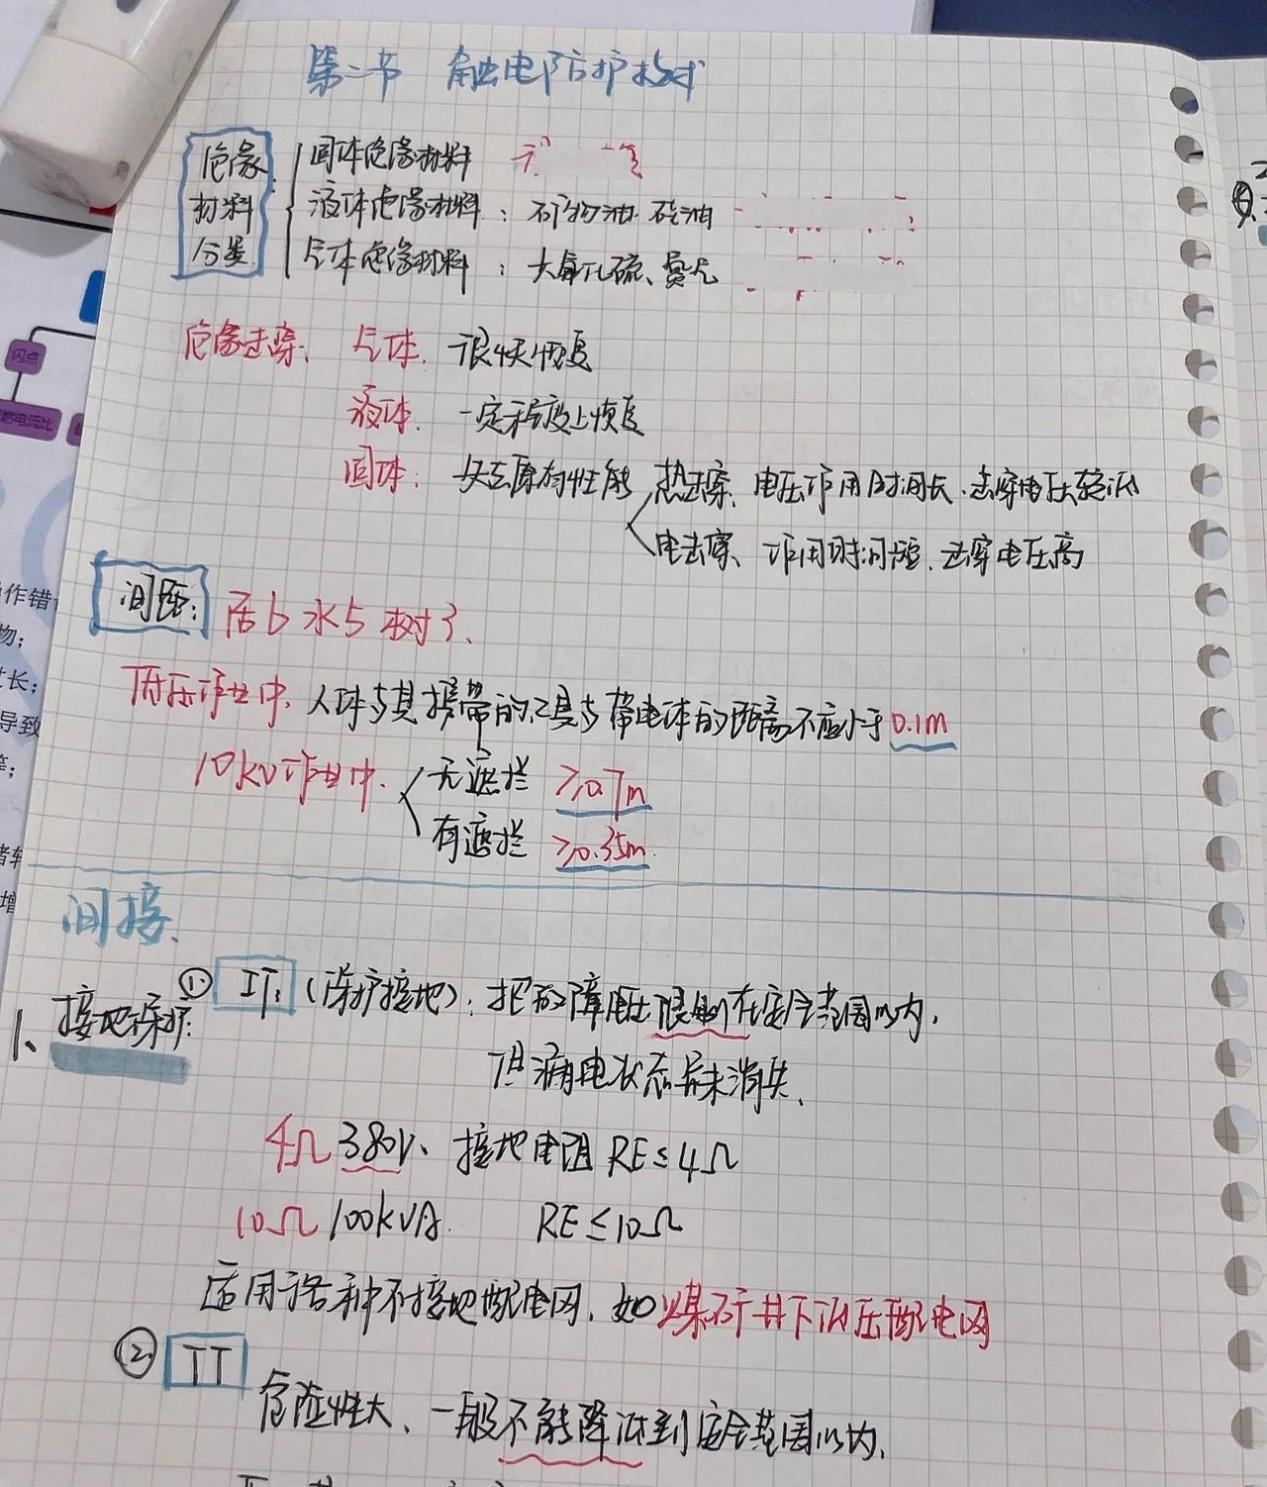 第二节 触电防护技术
绝缘材料分类:
固体绝缘材料
液体绝缘材料：矿物油 硅油
气体绝缘材料：六氟化硫、氮气
绝缘击穿: 气体. 很快恢复
液体. 一定程度上恢复
固体: 失去原有性能
热击穿、电压作用时间长.击穿电压较低
电击穿、作用时间短.击穿电压高
间距: 居6水5树3、
低压作业中、人体与其携带的工具与带电体的距离不应小于0.1m
10kV作业中. 无遮拦 ≥0.7m
有遮拦 ≥0.35m
间接、
1、接地保护: ① IT: (保护接地): 把故障电压限制在安全范围以内,
但漏电状态并未消失、
4Ω 380V、接地电阻 RE≤4Ω
10Ω 100kVA. RE≤10Ω
适用于各种不接地配电网. 如煤矿井下低压配电网
② TT
危险性大、一般不能降低到安全范围以内.
闪点
操作错
物；
长；
导致